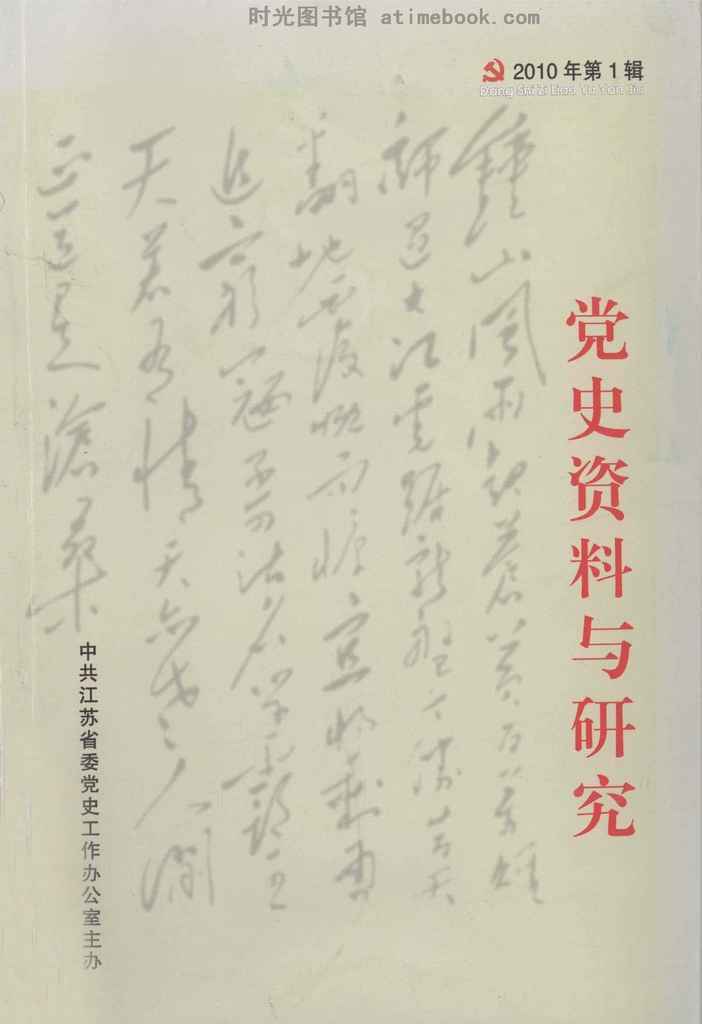 时光图书馆 atimebook.com
2010年第1辑
Dang Shi Zi Liao Yu Yan Jiu
党史资料与研究
鍾山風雨起蒼黄百万雄
師過大江虎踞龍盤今勝昔天
翻地覆慨而慷宜將剩勇
追窮寇不可沽名學霸王
天若有情天亦老人間
正道是滄桑
中共江苏省委党史工作办公室主办